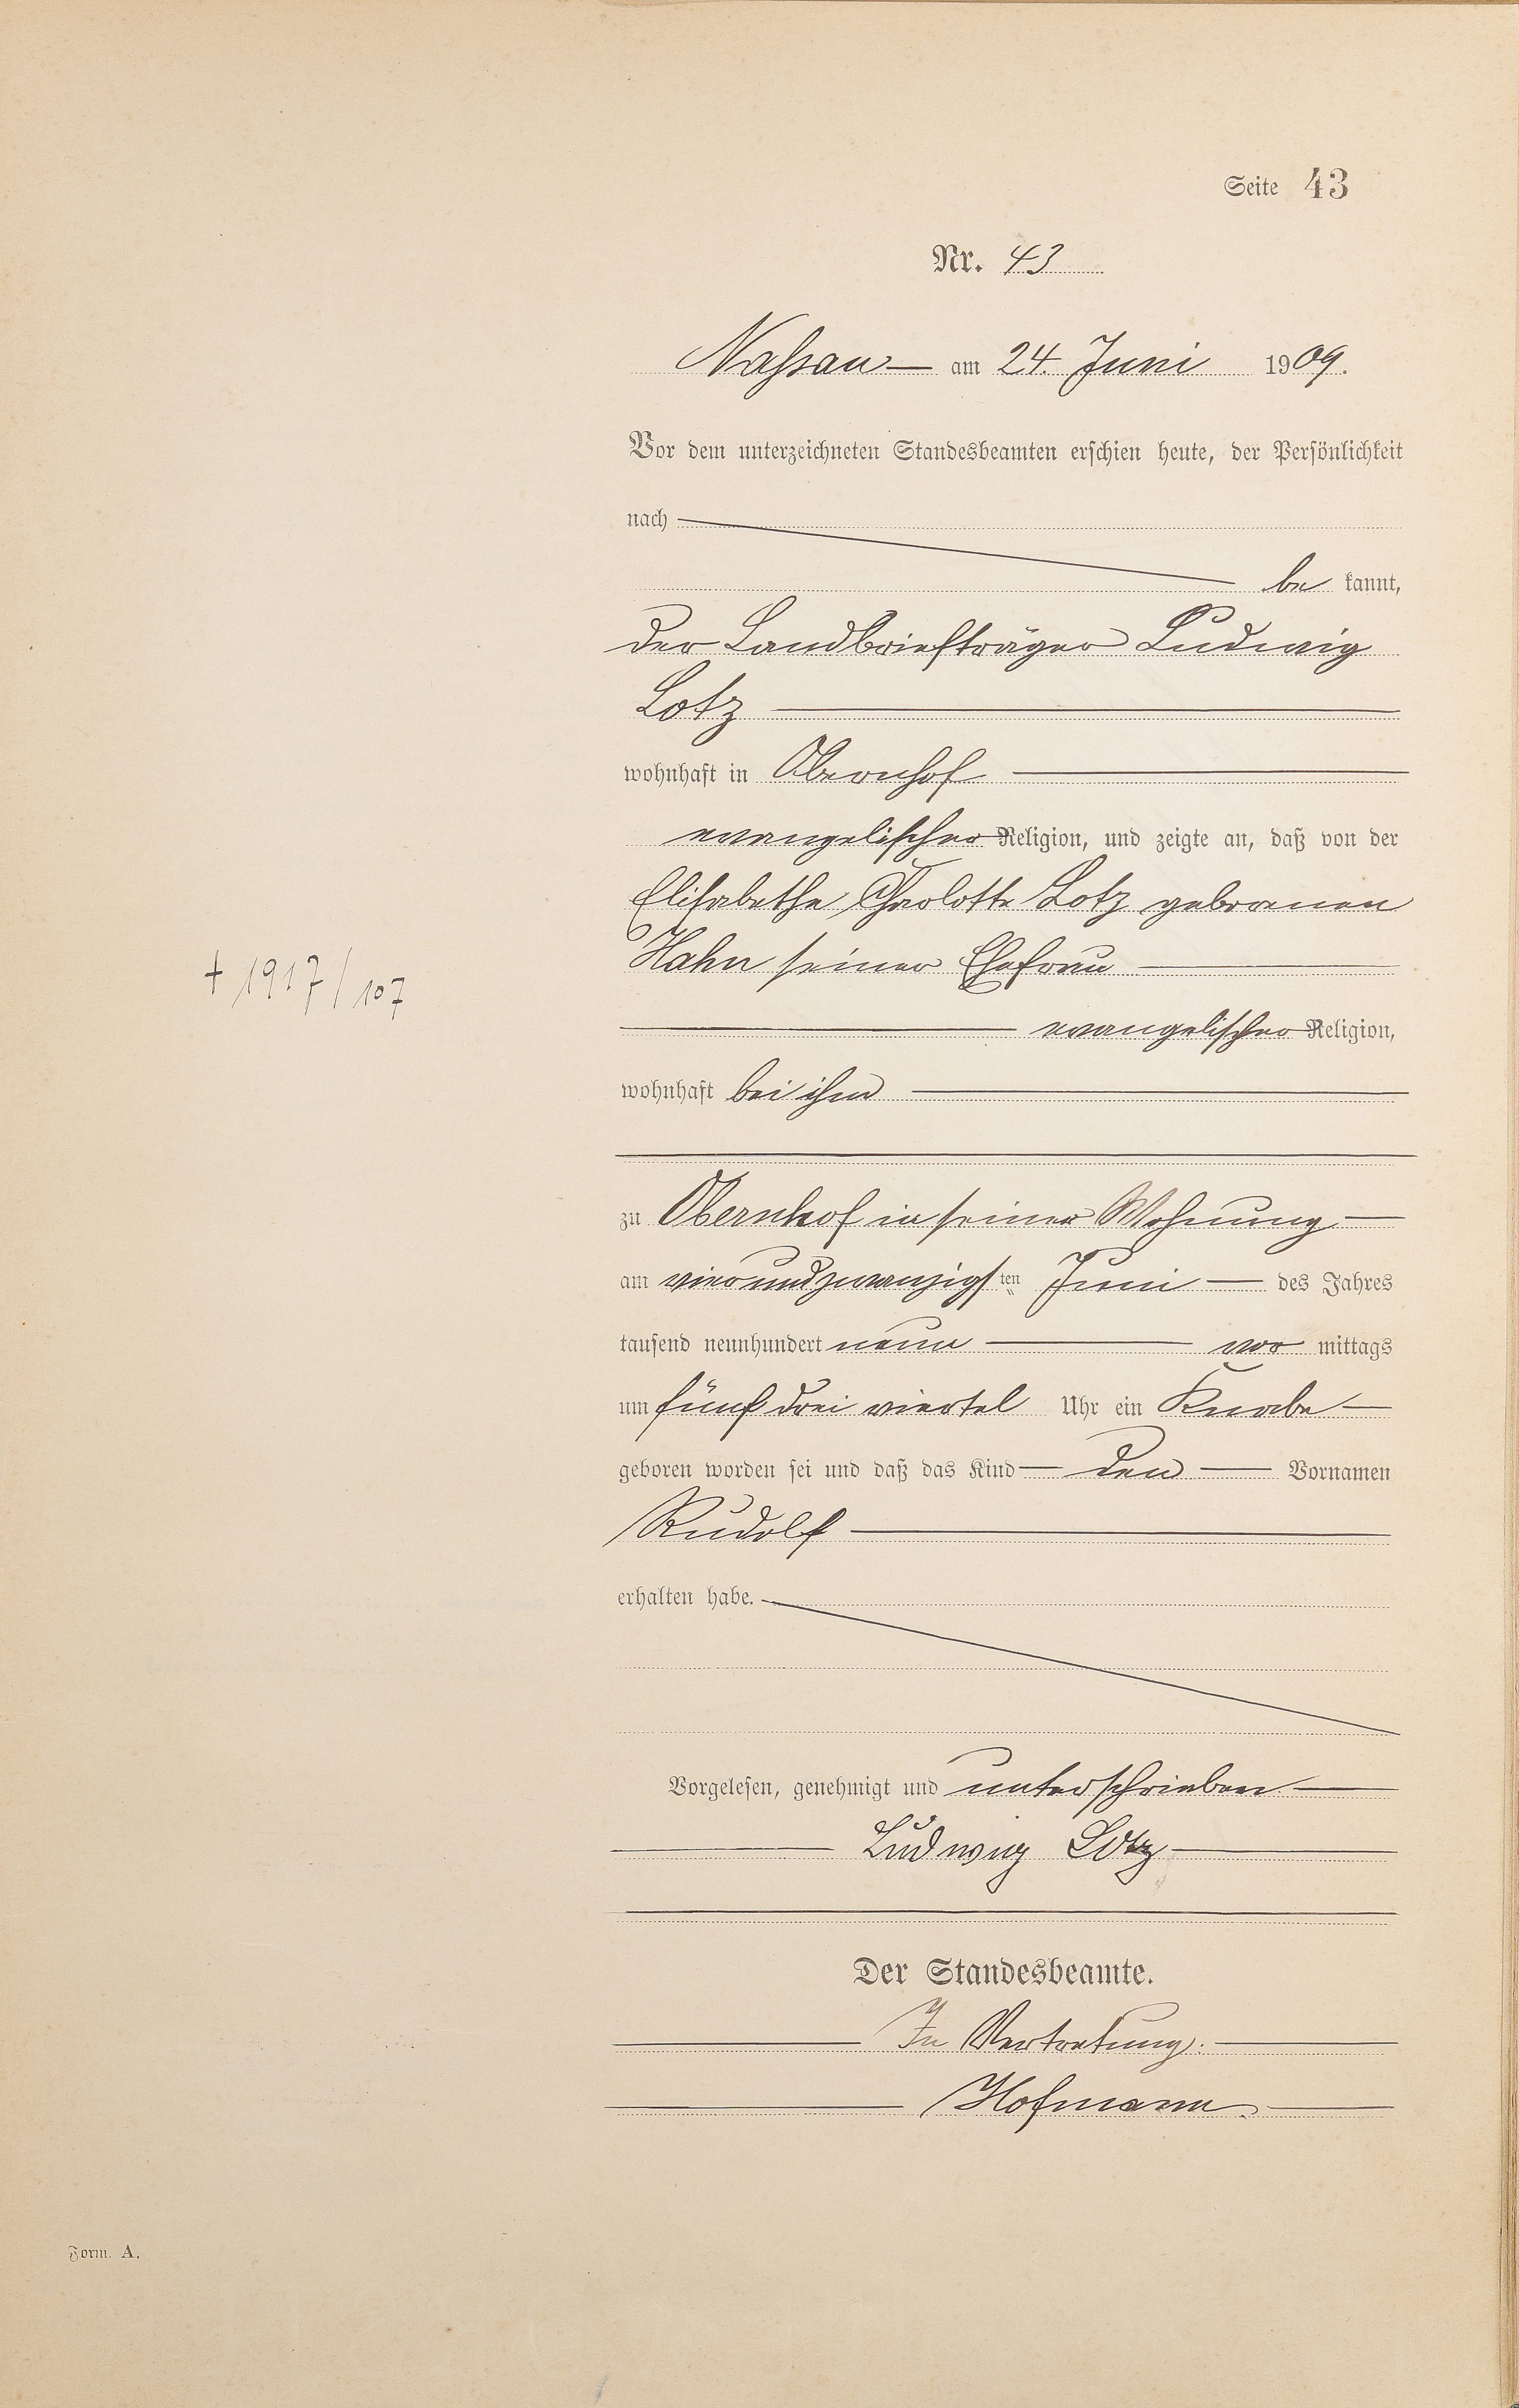 Seite 43
Nr. 43
Nassau am 24. Juni 1909.
Vor dem unterzeichneten Standesbeamten erschien heute, der Persönlichkeit
nach
be kannt,
der Landbriefträger Ludwig
Lotz
wohnhaft in Obernhof
evangelischer Religion, und zeigte an, daß von der
Elisabethe Charlotte Lotz geborenen
Hahn seiner Ehefrau
† 1917/107
evangelischer Religion,
wohnhaft bei ihm
zu Obernhof in seiner Wohnung
am vierundzwanzigsten Juni des Jahres
tausend neunhundert neun vor mittags
um fünf drei viertel Uhr ein Knabe
geboren worden sei und daß das Kind den Vornamen
Rudolf
erhalten habe.
Vorgelesen, genehmigt und unterschrieben
Ludwig Lotz
Der Standesbeamte.
In Vertretung.
Hofmann.
Form. A.